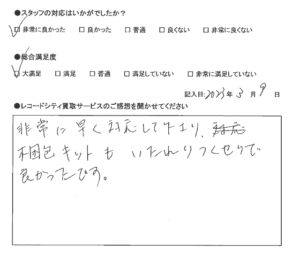 ●スタッフの対応はいかがでしたか？
□ 非常に良かった □ 良かった □ 普通 □ 良くない □ 非常に良くない
●総合満足度
□ 大満足 □ 満足 □ 普通 □ 満足していない □ 非常に満足していない
記入日：2023年 3月 9日
●レコードシティ買取サービスのご感想を聞かせてください
非常に早く対応して下さり、
梱包キットも いたれりつくせりで
良かったです。